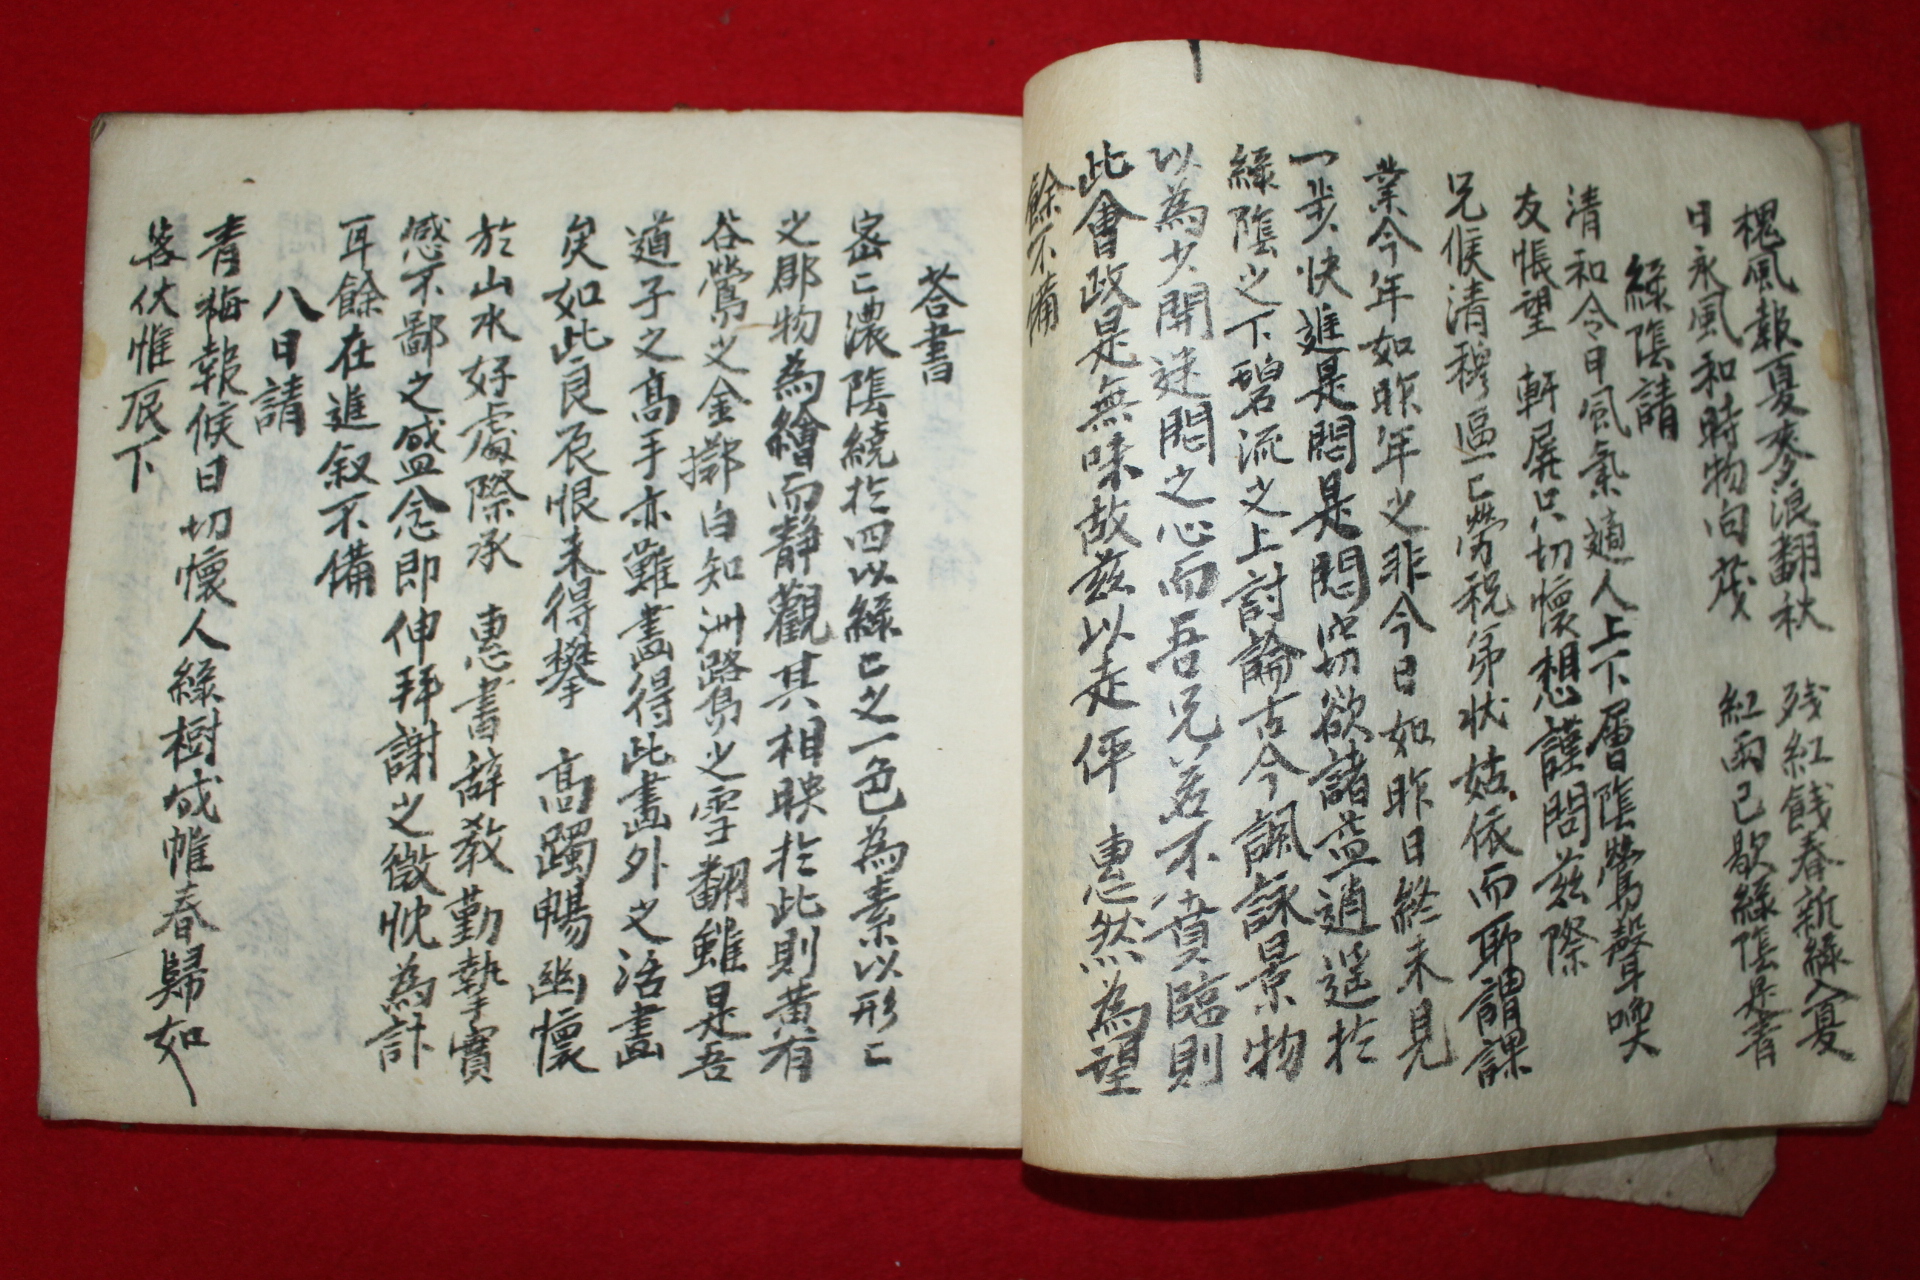 槐風報夏麥浪翻秋 殘紅餞春新綠入夏
日永風和時物向茂 紅雨已歇綠陰是青
綠陰請
清和令月風氣適人上下層陰鶯聲喚
友悵望 軒屛只切懷想謹問玆際
兄候清穆區〻勞祝弟狀姑依而耶謂課
業今年如昨年之非今日如昨日終未見
一步快進是悶是悶窃欲諸益逍遙於
綠陰之下碧流之上討論古今諷詠景物
以爲少開迷悶之心而吾兄若不賁臨則
此會政是無味故玆以走伻 惠然爲望
餘不備
答書
密〻濃陰繞於四以綠〻之一色爲素以形〻
之郡物爲繪而靜觀其相映於此則黃有
谷鶯之金擲白知洲鷺之雪翻雖是吾
道子之高手亦難畵得此畵外之活畵
矣如此良辰恨未得攀 高躅暢幽懷
於山水好處際承 惠書辭敎勤摯實
感不鄙之盛念卽伸拜謝之微忱爲計
耳餘在進叙不備
八日請
靑梅報候日切懷人綠樹成帷春歸如
客伏惟辰下